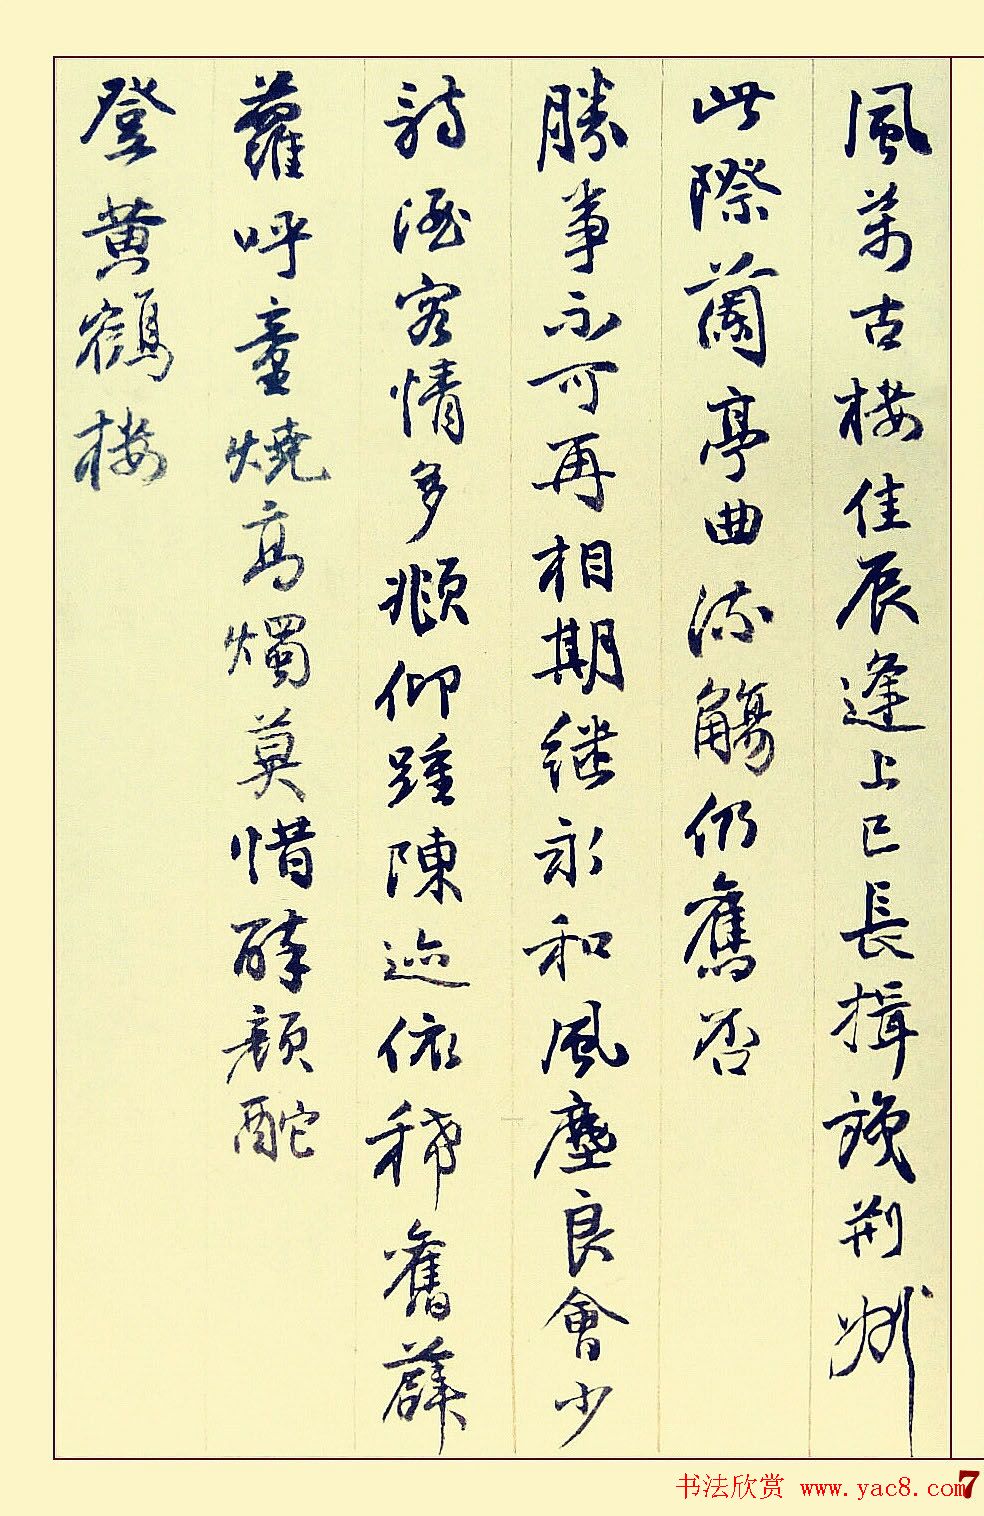 風萬古樓佳辰逢上巳長揖識荆州
此際蘭亭曲流觴仍舊否
勝事不可再相期继永和風塵良會少
詩酒客情多頫仰踵陳迹依稀舊薜
蘿呼童燒高燭莫惜醉顏酡
登黄鶴樓
书法欣赏 www.yac8.com
7